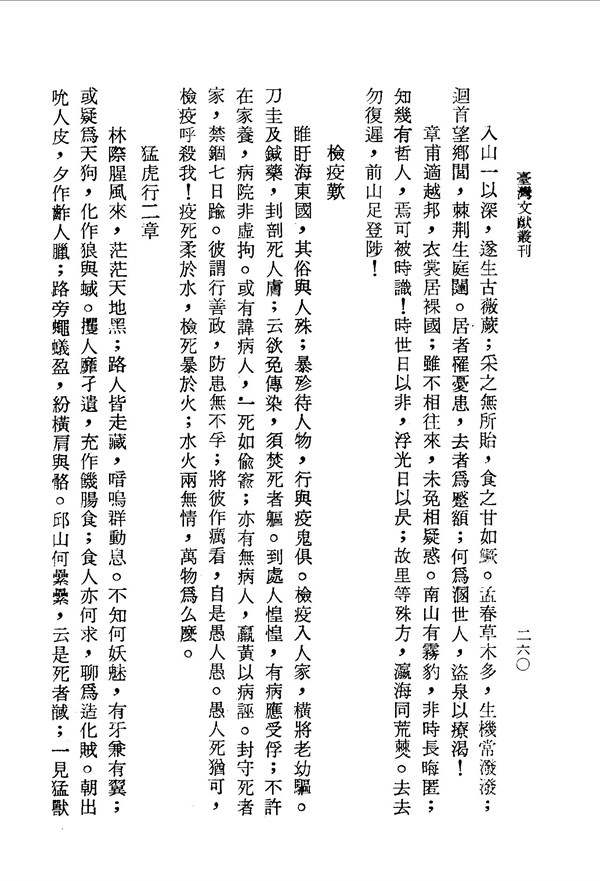 臺灣文獻叢刊
二六〇
入山一以深，遂生古薇蕨；采之無所貽，食之甘如鱖。孟春草木多，生機常潑潑；
迴首望鄉閭，棘荆生庭闥。居者罹憂患，去者爲蹙額；何爲溷世人，盜泉以療渴！
章甫適越邦，衣裳居裸國；雖不相往來，未免相疑惑。南山有霧豹，非時長晦匿；
知幾有哲人，焉可被時識！時世日以非，浮光日以昃；故里等殊方，瀛海同荒僰。去去
勿復遲，前山足登陟！
檢疫歎
睢盱海東國，其俗與人殊；暴殄待人物，行與疫鬼俱。檢疫入人家，橫將老幼驅。
刀圭及鍼藥，刲剖死人膚；云欲免傳染，須焚死者軀。到處人惶惶，有病應受俘；不許
在家養，病院非虛拘。或有諱病人，一死如偷窬；亦有無病人，羸黃以病誣。封守死者
家，禁錮七日踰。彼謂行善政，防患無不孚；將彼作癘看，自是愚人愚。愚人死猶可，
檢疫呼殺我！疫死柔於水，檢死暴於火；水火兩無情，萬物爲么麼。
猛虎行二章
林際腥風來，茫茫天地黑；路人皆走藏，喑嗚群動息。不知何妖魅，有牙兼有翼；
或疑爲天狗，化作狼與蜮。攫人靡孑遺，充作饑腸食；食人亦何求，聊爲造化賊。朝出
吮人皮，夕作齚人臘；路旁蠅蟻盈，紛橫肩與骼。邱山何纍纍，云是死者馘；一見猛獸